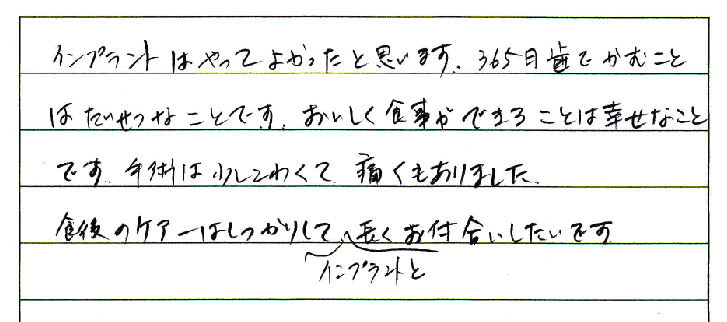 インプラントはやってよかったと思います。365日歯でかむこと
はたいせつなことです。おいしく食事ができることは幸せなこと
です。手術は少しこわくて痛くもありました。
食後のケアーはしっかりして、長くお付合いしたいです
インプラントと